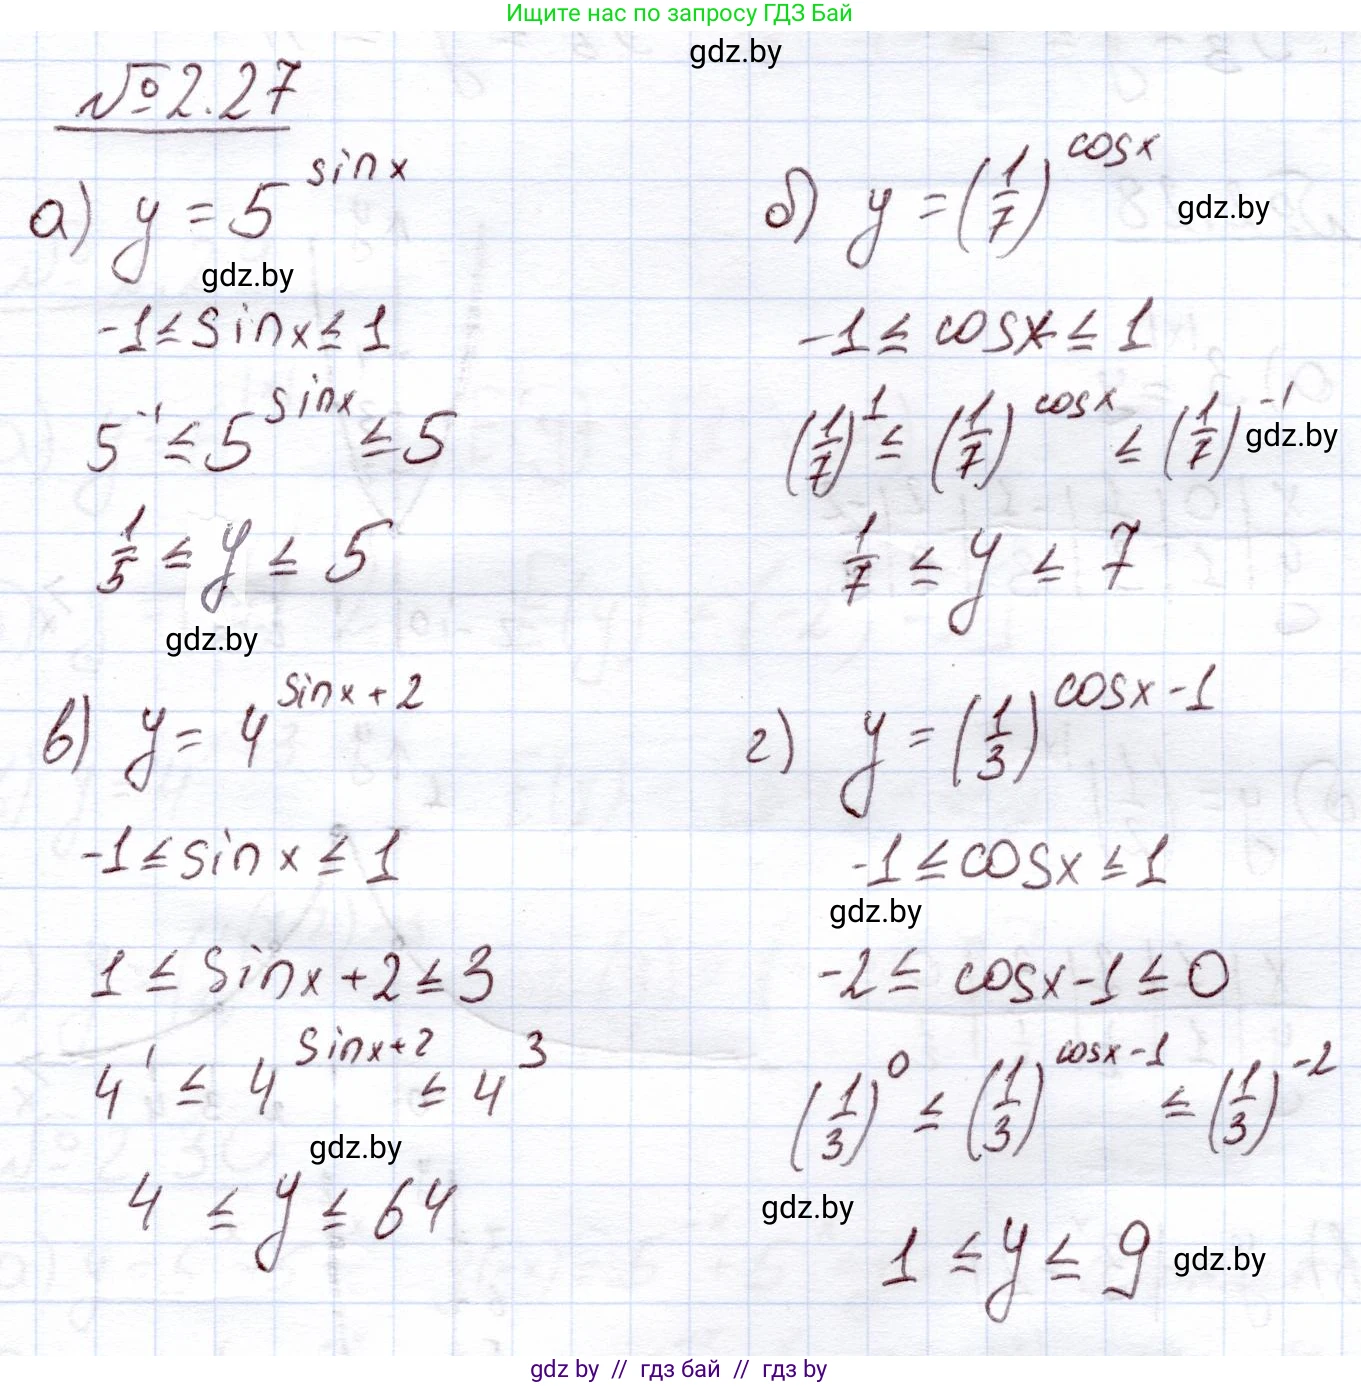 Ищите нас по запросу ГДЗ Бай
gdz.by
№2.27
а) y = 5^sinx
gdz.by
-1 ≤ sinx ≤ 1
5^-1 ≤ 5^sinx ≤ 5
1/5 ≤ y ≤ 5
gdz.by
б) y = (1/7)^cosx
gdz.by
-1 ≤ cosx ≤ 1
(1/7)^1 ≤ (1/7)^cosx ≤ (1/7)^-1
gdz.by
1/7 ≤ y ≤ 7
в) y = 4^sinx+2
-1 ≤ sinx ≤ 1
1 ≤ sinx+2 ≤ 3
4^1 ≤ 4^sinx+2 ≤ 4^3
gdz.by
4 ≤ y ≤ 64
г) y = (1/3)^cosx-1
-1 ≤ cosx ≤ 1
gdz.by
-2 ≤ cosx-1 ≤ 0
(1/3)^0 ≤ (1/3)^cosx-1 ≤ (1/3)^-2
gdz.by
1 ≤ y ≤ 9
gdz.by
gdz by // гдз бай // гдз by